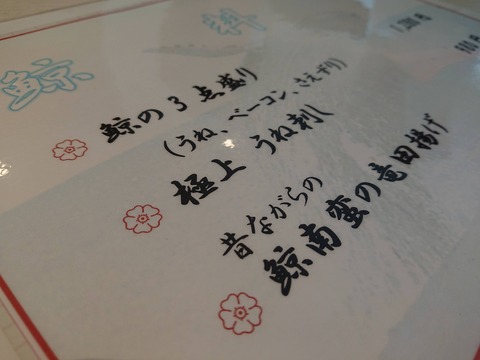 鯨
鯨の3点盛り
(うね、ベーコン、さえずり)
極上 うね刺し
昔ながらの
鯨南蛮の竜田揚げ